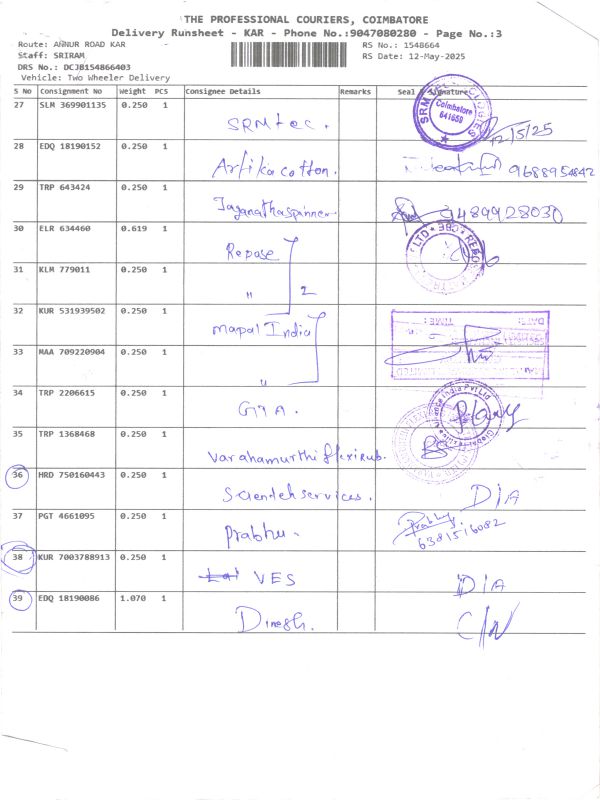 THE PROFESSIONAL COURIERS, COIMBATORE
Delivery Runsheet - KAR - Phone No.:9047080280 - Page No.:3
Route: ANNUR ROAD KAR
RS No.: 1548664
Staff: SRIRAM
RS Date: 12-May-2025
DRS No.: DCJB154866403
Vehicle: Two Wheeler Delivery
S No Consignment No Weight PCS Consignee Details Remarks Seal & Signature
27 SLM 369901135 0.250 1 SRMtec. Coimbatore 641659 12/5/25
28 EDQ 18190152 0.250 1 Artika cotton. 9688954842
29 TRP 643424 0.250 1 Jaganathaspinner 9489928030
30 ELR 634460 0.619 1 Repose
31 KLM 779011 0.250 1 " 2
32 KUR 531939502 0.250 1 mapal India DATE: TIME:
33 MAA 709220904 0.250 1 "
34 TRP 2206615 0.250 1 GTA.
35 TRP 1368468 0.250 1 Varahamurthi flexirub.
36 HRD 750160443 0.250 1 Scientehservices. D/A
37 PGT 4661095 0.250 1 Prabhu. Prabhu 6381516082
38 KUR 7003788913 0.250 1 VES D/A
39 EDQ 18190086 1.070 1 Dinesh. C/N